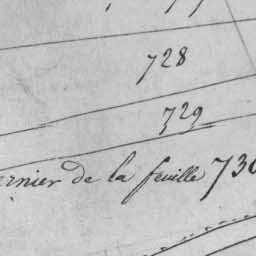 728
729
ernier de la feuille 730